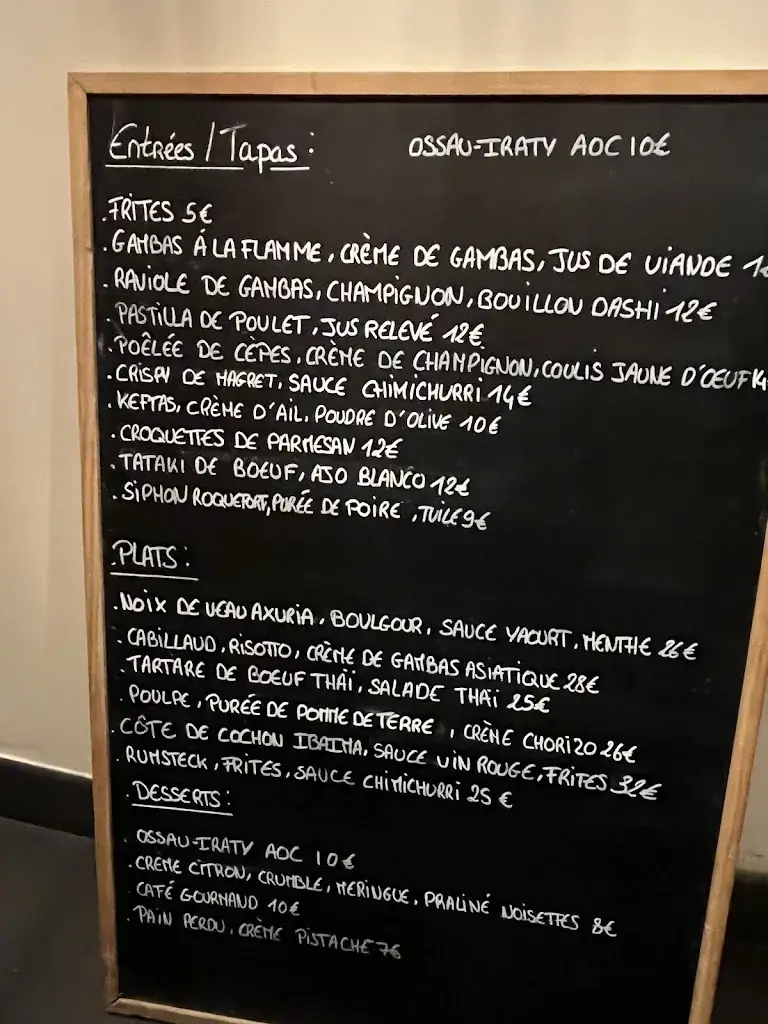 Entrées / Tapas : OSSAU-IRATY AOC 10€
.FRITES 5€
.GAMBAS Á LA FLAMME, CRÈME DE GAMBAS, JUS DE VIANDE
.RAVIOLE DE GAMBAS, CHAMPIGNON, BOUILLON DASHI 12€
.PASTILLA DE POULET, JUS RELEVÉ 12€
.POÊLÉE DE CÈPES, CRÈME DE CHAMPIGNON, COULIS JAUNE D'OEUF 14
.CRISPY DE MAGRET, SAUCE CHIMICHURRI 14€
.KEFTAS, CRÈME D'AIL, POUDRE D'OLIVE 10€
.CROQUETTES DE PARMESAN 12€
.TATAKI DE BOEUF, AJO BLANCO 12€
.SIPHON ROQUEFORT, PURÉE DE POIRE, TUILE 9€
.PLATS :
.NOIX DE VEAU AXURIA, BOULGOUR, SAUCE YAOURT, MENTHE 26€
.CABILLAUD, RISOTTO, CRÈME DE GAMBAS ASIATIQUE 28€
.TARTARE DE BOEUF THAÏ, SALADE THAÏ 25€
.POULPE, PURÉE DE POMME DE TERRE, CRÈME CHORIZO 26€
.CÔTE DE COCHON IBAIMA, SAUCE VIN ROUGE, FRITES 32€
.RUMSTECK, FRITES, SAUCE CHIMICHURRI 25 €
.DESSERTS :
.OSSAU-IRATY AOC 10€
.CRÈME CITRON, CRUMBLE, MERINGUE, PRALINÉ NOISETTES 8€
.CAFÉ GOURMAND 10€
.PAIN PERDU, CRÈME PISTACHE 7€